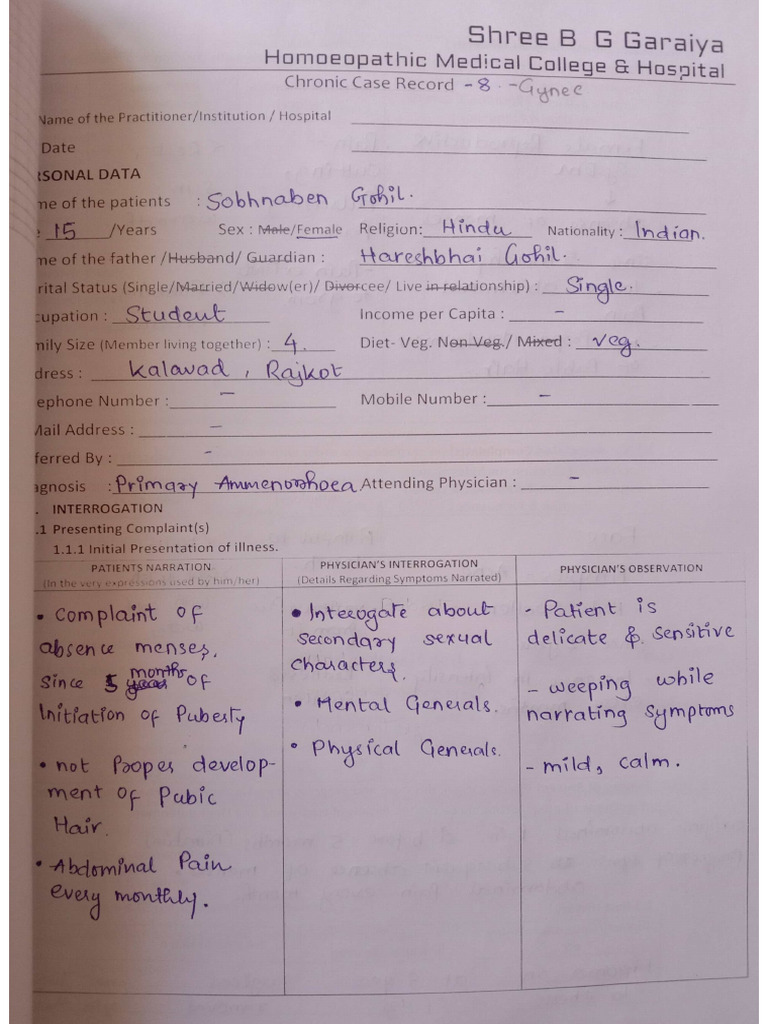 Shree B G Garaiya
Homoeopathic Medical College & Hospital
Chronic Case Record - 8 - Gynec
Name of the Practitioner/Institution / Hospital
Date
RSONAL DATA
me of the patients : Sobhnaben Gohil.
15 /Years Sex : Male/Female Religion: Hindu Nationality : Indian.
me of the father /Husband/ Guardian : Hareshbhai Gohil.
rital Status (Single/Married/Widow(er)/ Divorcee/ Live in relationship) : Single.
cupation : Student Income per Capita : -
mily Size (Member living together) : 4. Diet- Veg. Non Veg./ Mixed : Veg.
dress : Kalavad , Rajkot
ephone Number : - Mobile Number : -
Mail Address : -
ferred By : -
agnosis : Primary Ammenorrhoea Attending Physician : -
. INTERROGATION
.1 Presenting Complaint(s)
1.1.1 Initial Presentation of illness.
PATIENTS NARRATION
(In the very expressions used by him/her)
• Complaint of
absence menses,
Since 5 months of
Initiation of Puberty
• not Proper develop-
ment of Pubic
Hair.
• Abdominal Pain
every monthly.
PHYSICIAN'S INTERROGATION
(Details Regarding Symptoms Narrated)
• Interogate about
secondary sexual
characters.
• Mental Generals.
• Physical Generals.
PHYSICIAN'S OBSERVATION
- Patient is
delicate & sensitive
- weeping while
narrating symptoms
- mild, calm.